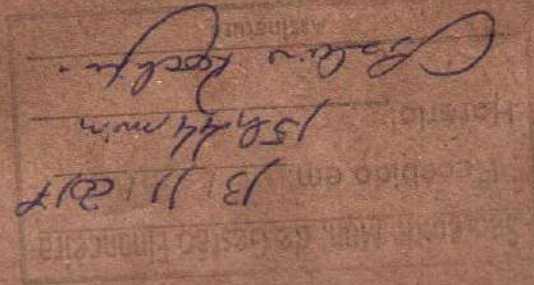 Mun. de Gestão Financeira
Recebido em 13 / 11 / 2017
Horário: 15h 44 min
Assinatura